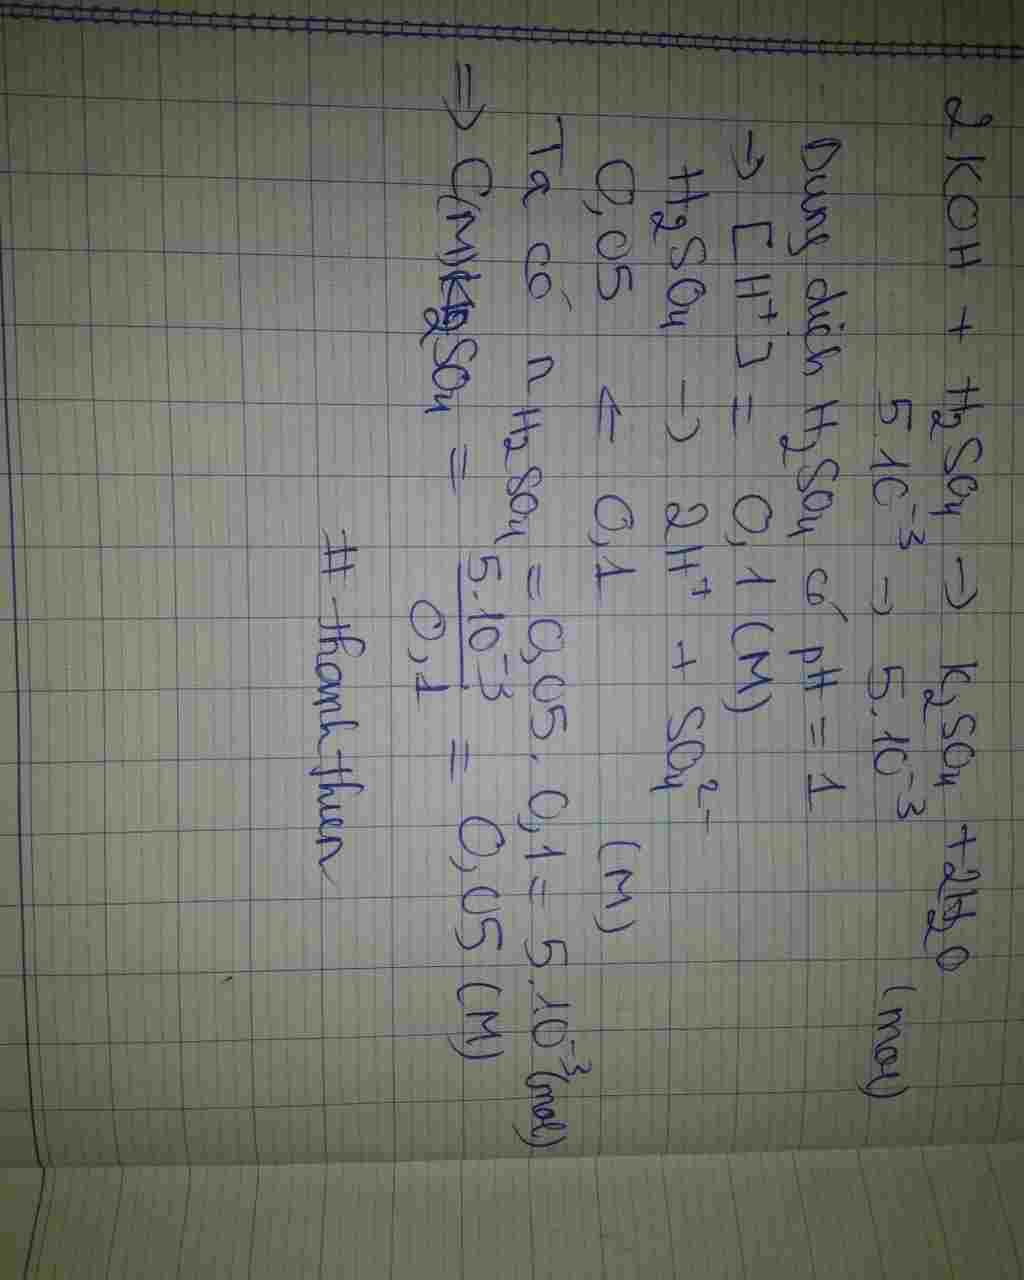 2KOH + H₂SO₄ → K₂SO₄ + 2H₂O
5.10⁻³ → 5.10⁻³ (mol)
Dung dịch H₂SO₄ có pH = 1
→ [H⁺] = 0,1 (M)
H₂SO₄ → 2H⁺ + SO₄²⁻
0,05 ← 0,1 (M)
Ta có n H₂SO₄ = 0,05. 0,1 = 5.10⁻³ (mol)
⇒ C(M) K₂SO₄ = 5.10⁻³ / 0,1 = 0,05 (M)
# thanhthien